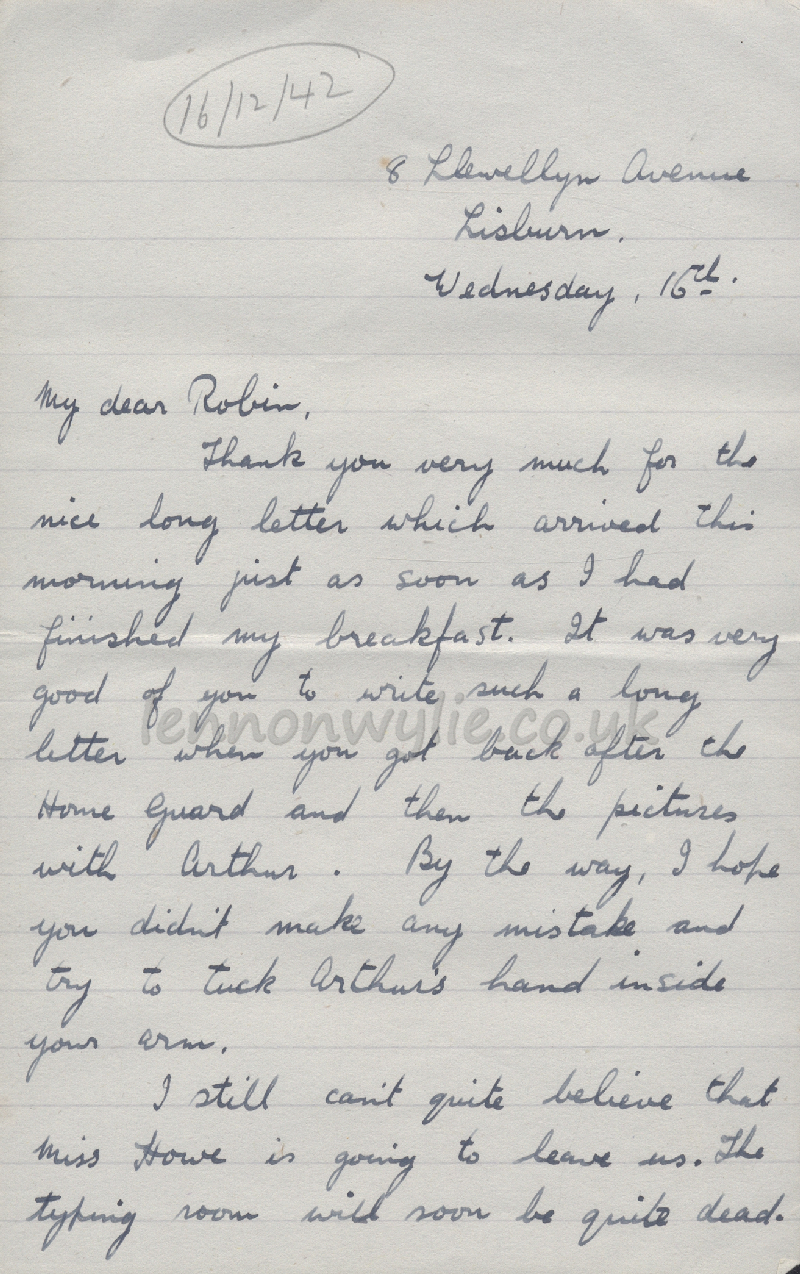 16/12/42
8 Llewellyn Avenue
Lisburn.
Wednesday, 16th.
My dear Robin,
Thank you very much for the
nice long letter which arrived this
morning just as soon as I had
finished my breakfast. It was very
good of you to write such a long
lennonwylie.co.uk
letter when you got back after the
Home Guard and then the pictures
with Arthur. By the way, I hope
you didn't make any mistake and
try to tuck Arthur's hand inside
your arm.
I still can't quite believe that
Miss Howe is going to leave us. The
typing room will soon be quite dead.